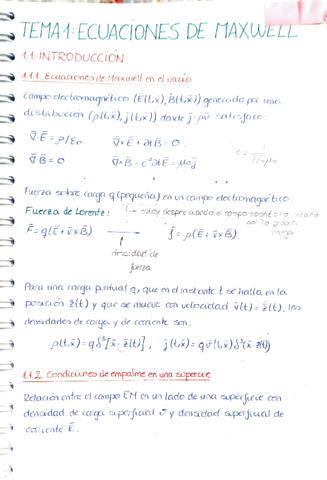 TEMA 1: ECUACIONES DE MAXWELL
1.1. INTRODUCCIÓN
1.1.1. Ecuaciones de Maxwell en el vacío
Campo electromagnético (E̅(t,x̅), B̅(t,x̅)) generado por una
distribución (ρ(t,x̅), j̅(t,x̅)) donde j̅=ρv̅ satisface:
∇̅·E̅ = ρ/ε₀    ∇̅×E̅ + ∂tB̅ = 0    c = 1/√ε₀μ₀
∇̅·B̅ = 0    ∇̅×B̅ - c⁻²∂tE̅ = μ₀j̅
Fuerza sobre carga q (pequeña) en un campo electromagnético:
Fuerza de Lorentz: estoy despreciando el campo creado
por la propia
carga
F̅ = q(E̅ + v̅×B̅)    f̅ = ρ(E̅ + v̅×B̅)
densidad de
fuerza
Para una carga puntual q, que en el instante t se halla en la
posición z̅(t) y que se mueve con velocidad v̅(t) = z̅(t), las
densidades de carga y de corriente son:
ρ(t,x̅) = qδ³[x̅ - z̅(t)],    j̅(t,x̅) = qv̅(t)δ³[x̅ - z̅(t)]
1.1.2. Condiciones de empalme en una superficie
Relación entre el campo EM en un lado de una superficie con
densidad de carga superficial σ y densidad superficial de
corriente K̅.